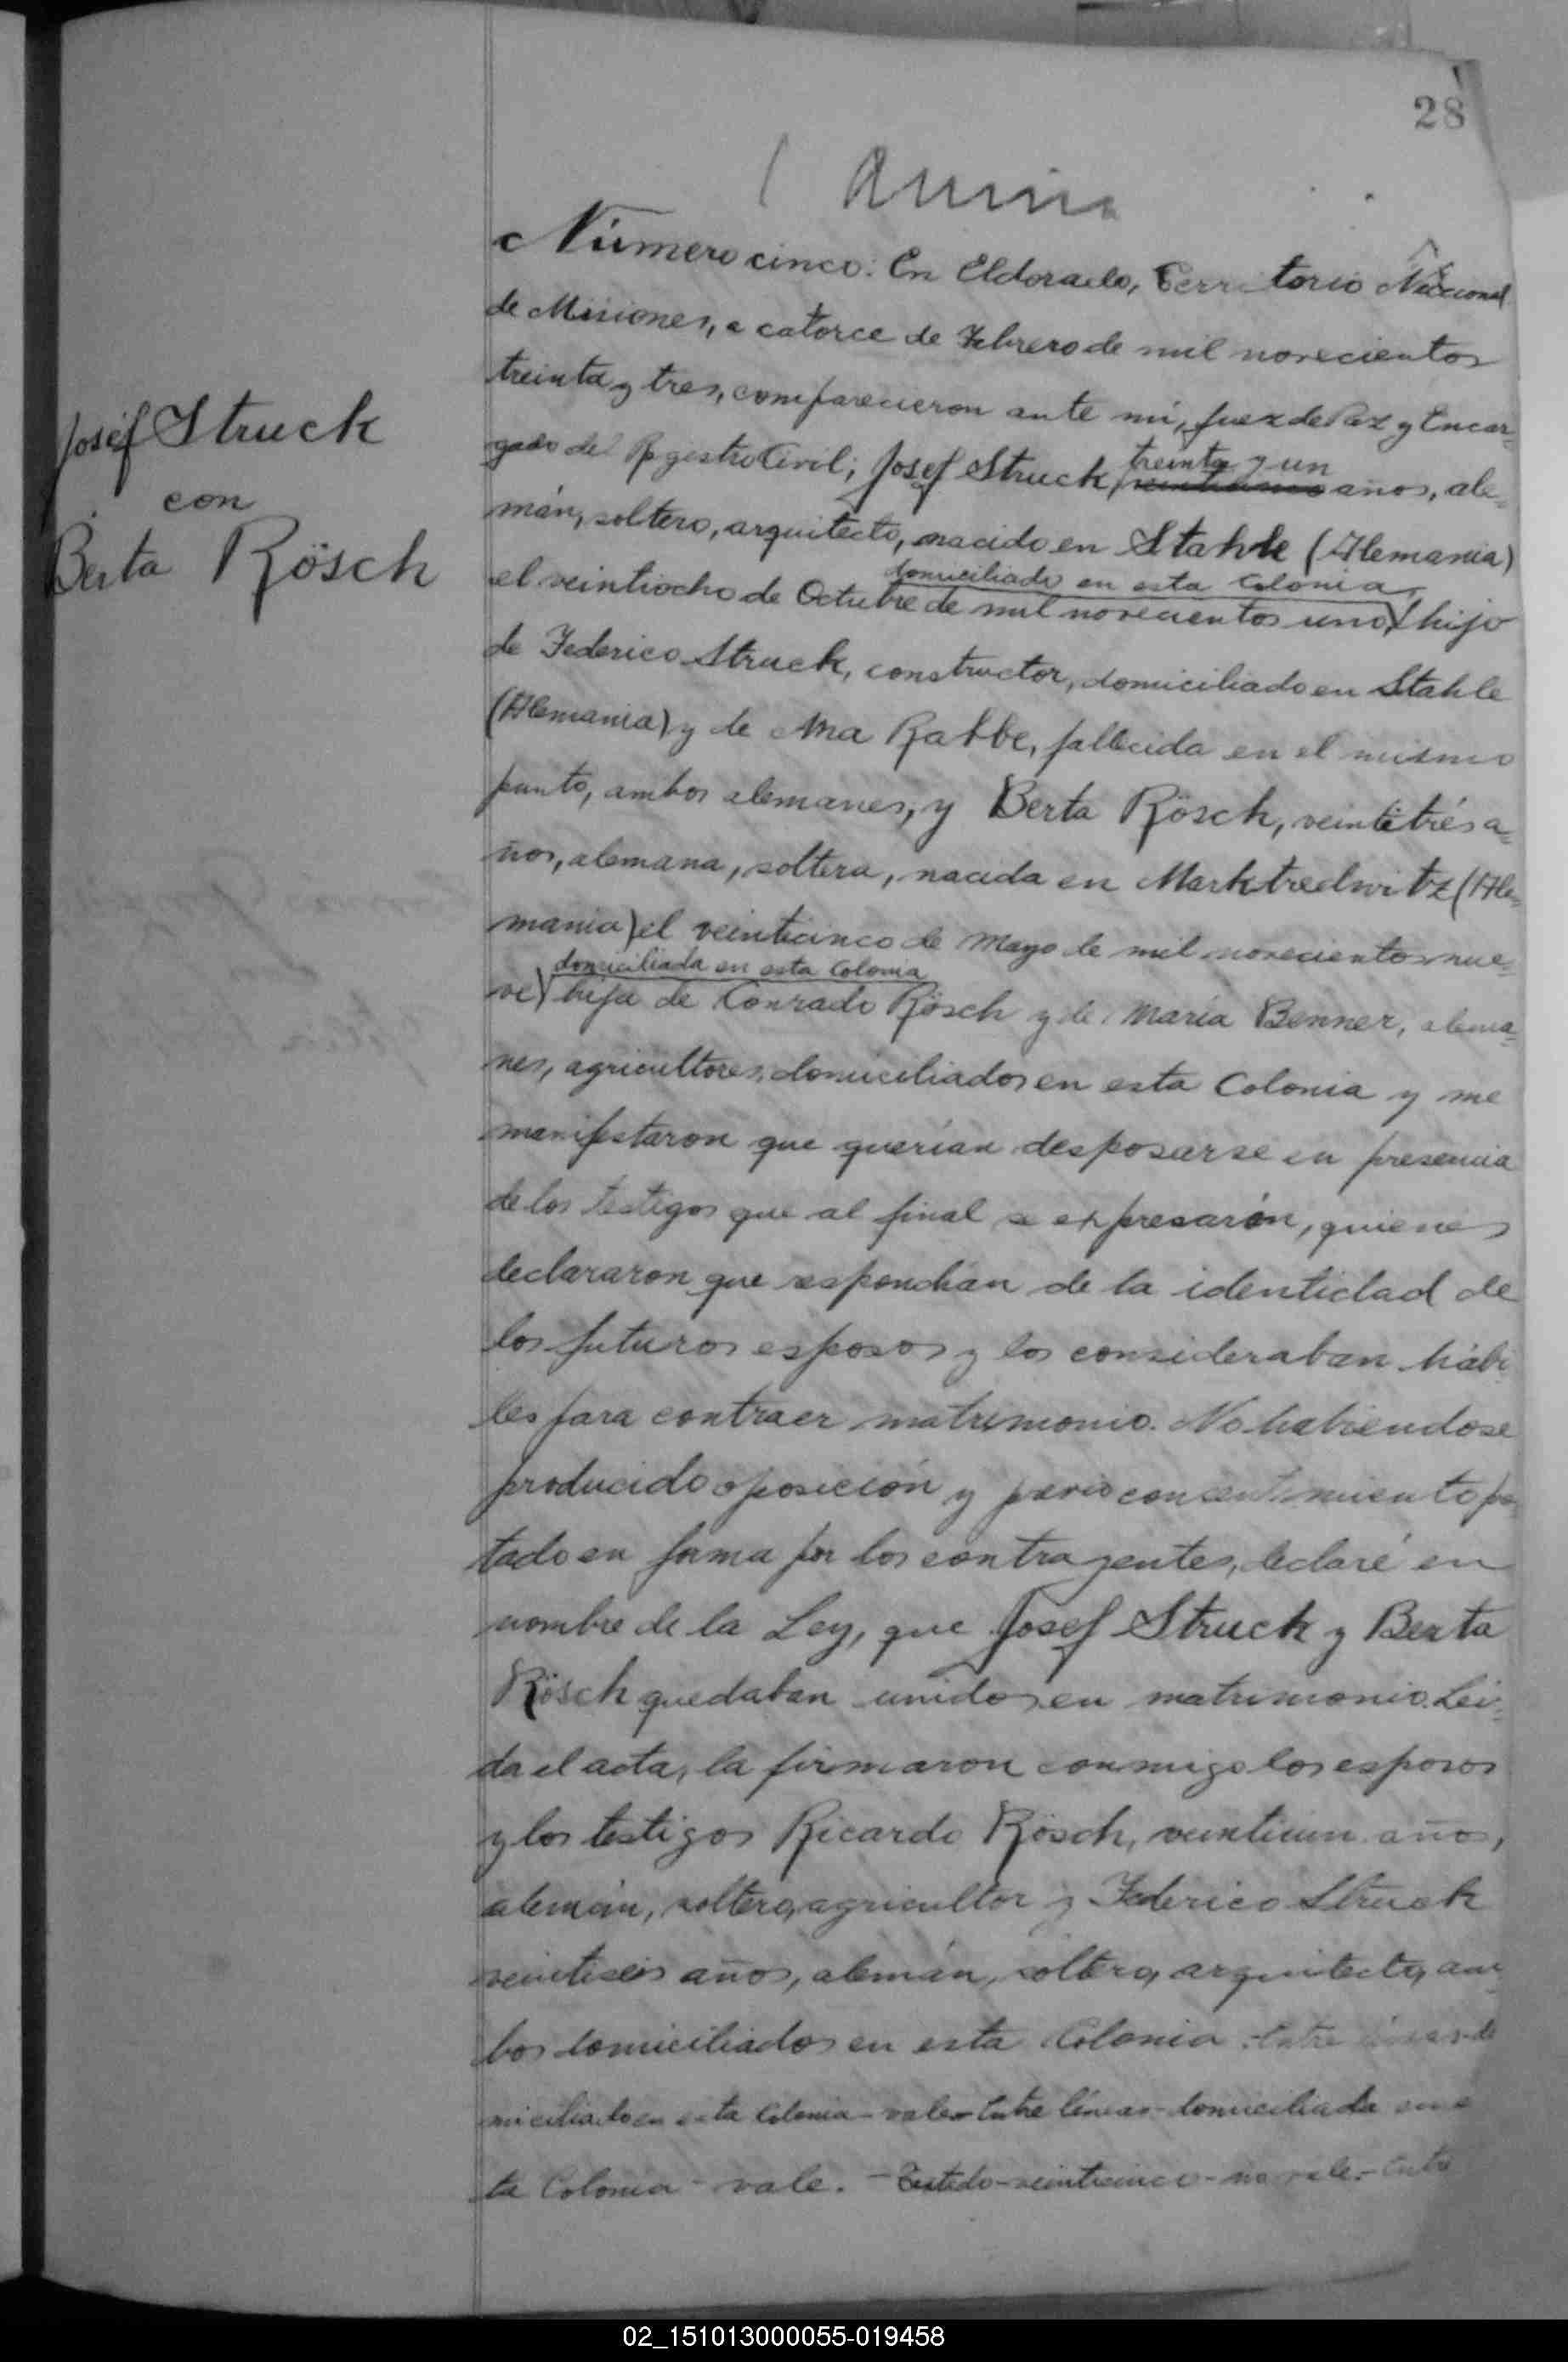 28
Número cinco: En Eldorado, Territorio Nacional
de Misiones, a catorce de Febrero de mil novecientos
treinta y tres, comparecieron ante mí, Juez de Paz y Encar-
gado del Registro Civil; Josef Struck, treinta y un años, ale-
mán, soltero, arquitecto, nacido en Stahle (Alemania)
domiciliado en esta Colonia,
el veintiocho de Octubre de mil novecientos uno, hijo
de Federico Struck, constructor, domiciliado en Stahle
(Alemania) y de Ana Rabbe, fallecida en el mismo
punto, ambos alemanes, y Berta Rösch, veintitrés a-
ños, alemana, soltera, nacida en Marktredwitz (Ale-
mania) el veinticinco de Mayo de mil novecientos nue-
domiciliada en esta Colonia
ve) hija de Conrado Rösch y de María Benner, alema-
nes, agricultores, domiciliados en esta Colonia y me
manifestaron que querían desposarse en presencia
de los testigos que al final se expresarán, quienes
declararon que respondían de la identidad de
los futuros esposos y los consideraban hábi
les para contraer matrimonio. No habiendose
producido oposición y previo consentimiento
tado en forma por los contrayentes, declaré en
nombre de la Ley, que Josef Struck y Berta
Rösch quedaban unidos en matrimonio. Leí-
da el acta, la firmaron conmigo los esposos
y los testigos Ricardo Rösch, veintiun años,
alemán, soltero, agricultor y Federico Struck
veintiseis años, alemán, soltero, arquitecto, am-
bos domiciliados en esta Colonia. Entre líneas-do
miciliado en esta Colonia - vale - Entre líneas - domiciliada en es
ta Colonia - vale. - Testado - veinticinco - no vale. - Entre
Josef Struck
con
Berta Rösch
02_151013000055-019458